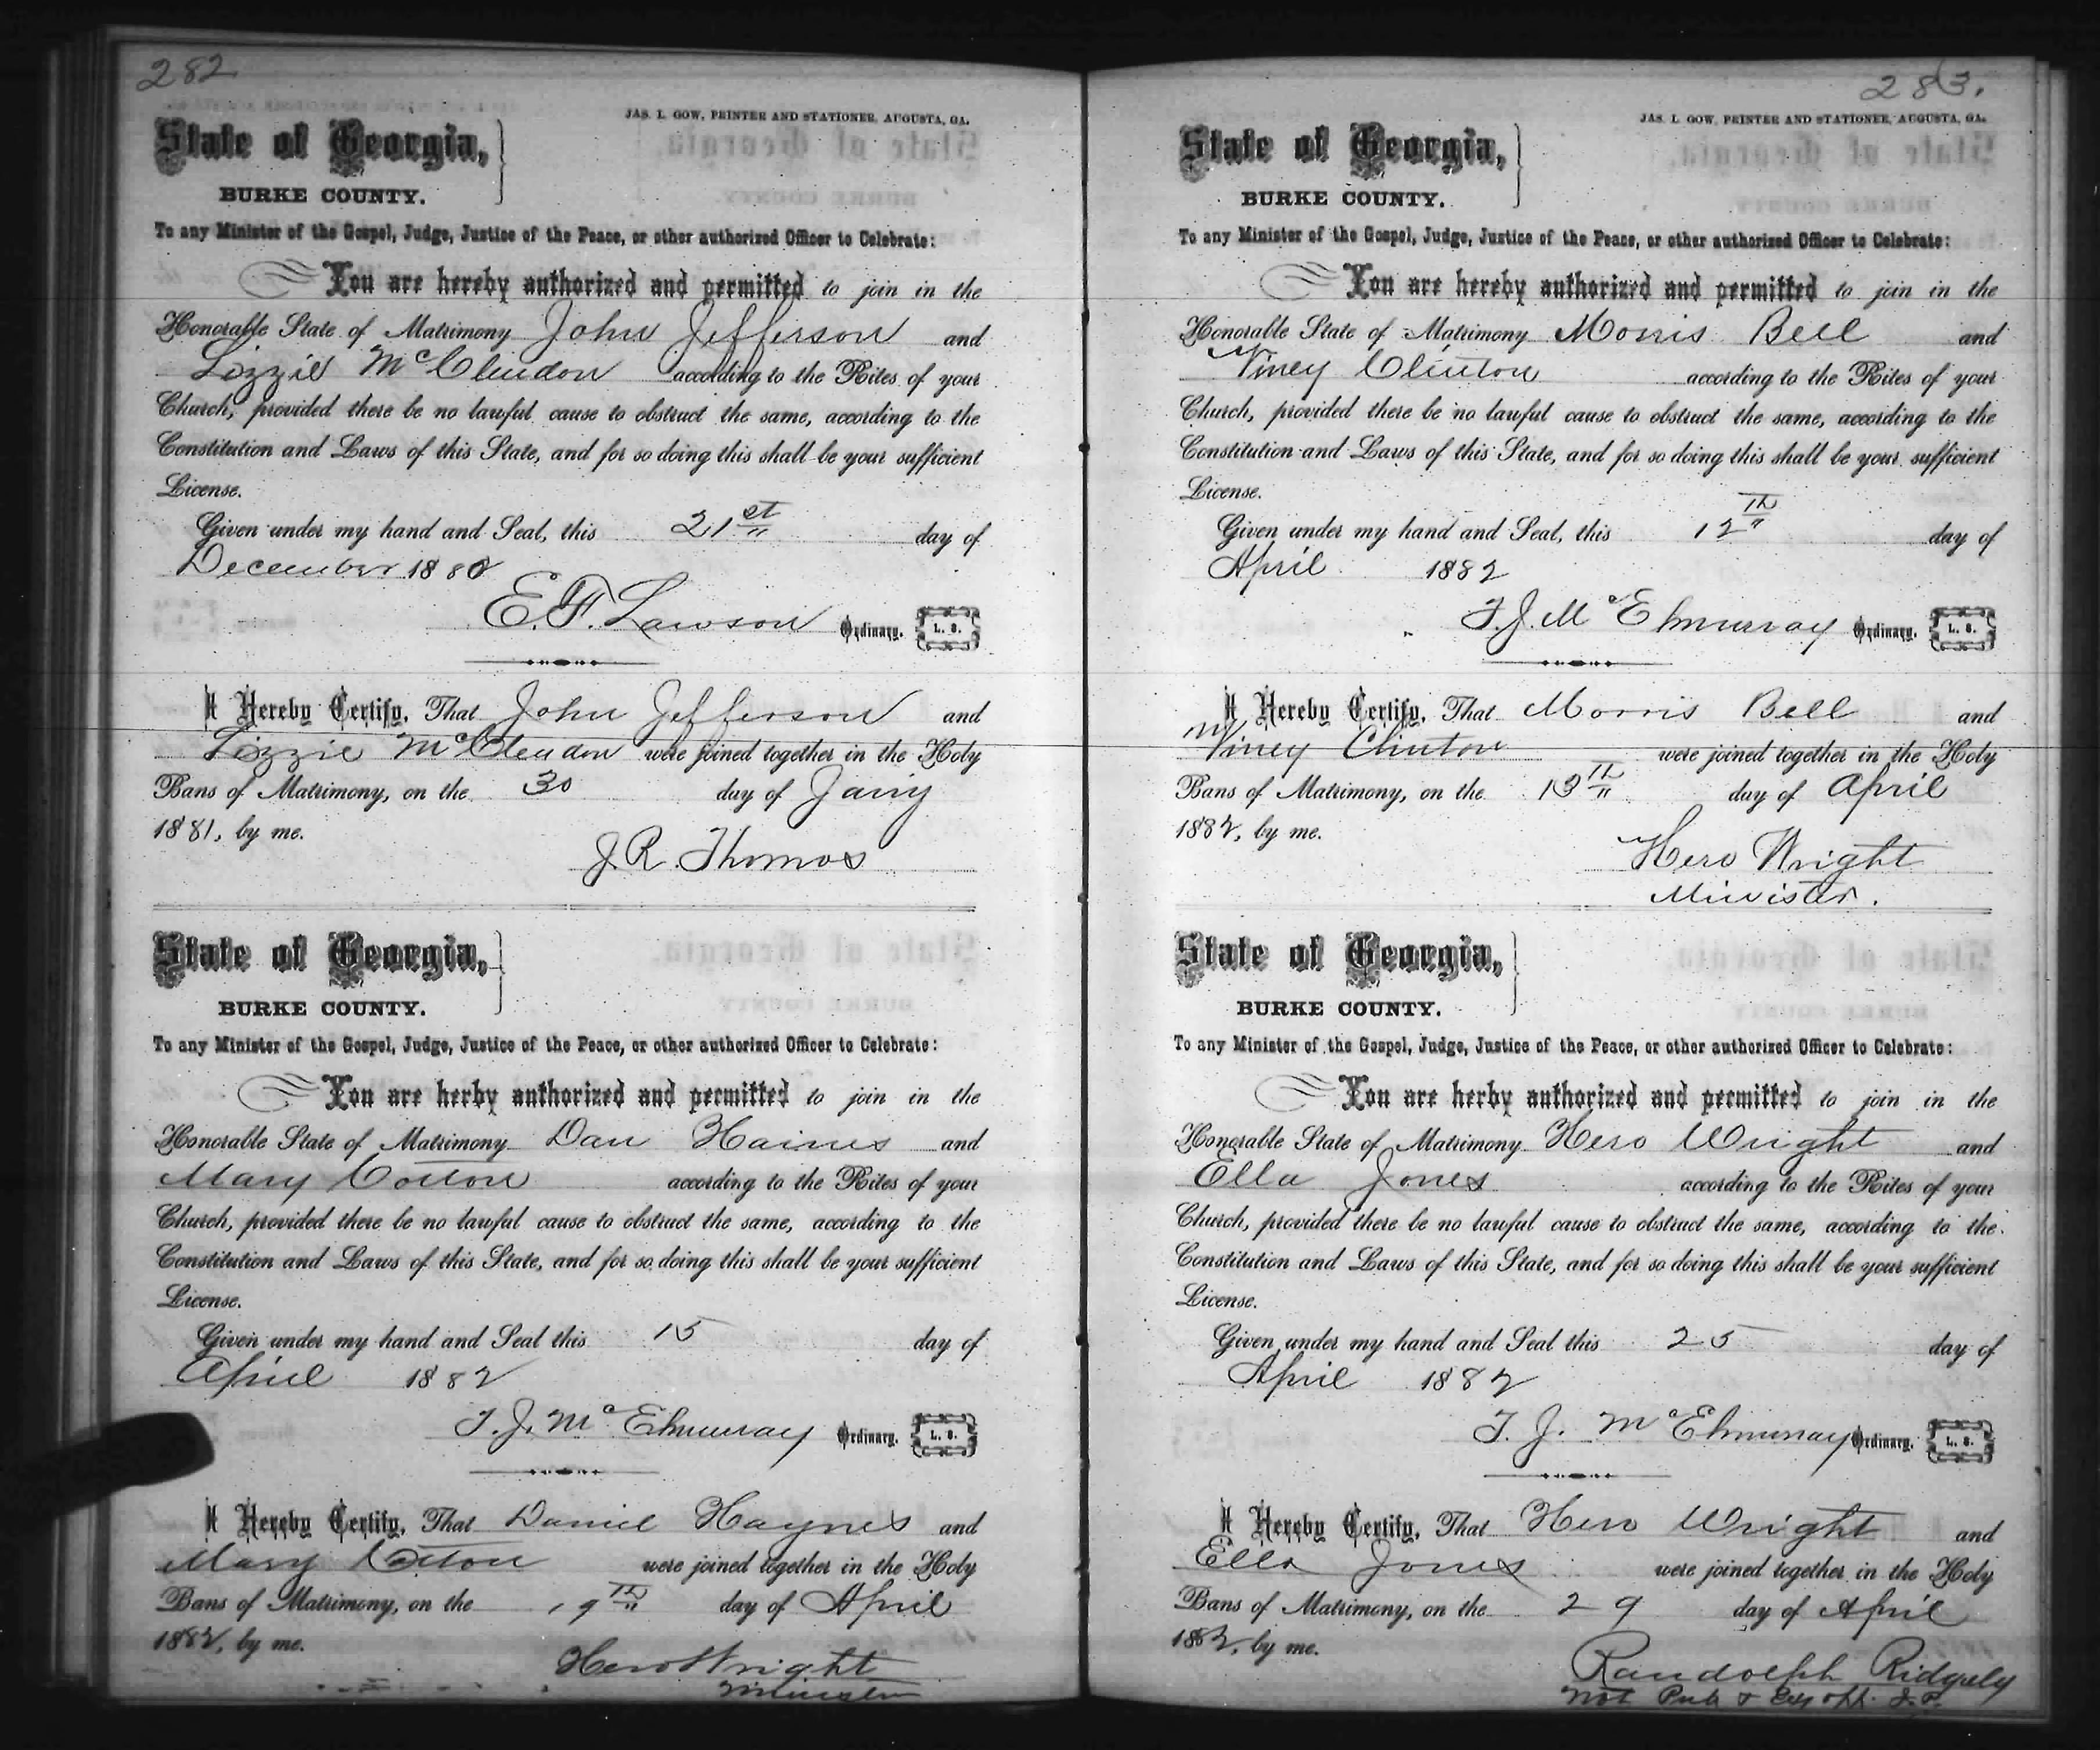 282
JAS. L. GOW, PRINTER AND STATIONER, AUGUSTA, GA.
State of Georgia,
BURKE COUNTY.
To any Minister of the Gospel, Judge, Justice of the Peace, or other authorized Officer to Celebrate:
You are hereby authorized and permitted to join in the
Honorable State of Matrimony John Jefferson and
Lizzie McClendon according to the Rites of your
Church, provided there be no lawful cause to obstruct the same, according to the
Constitution and Laws of this State, and for so doing this shall be your sufficient
License.
Given under my hand and Seal, this 21st day of
December 1880
E. F. Lawson Ordinary. L. S.
I Hereby Certify, That John Jefferson and
Lizzie McClendon were joined together in the Holy
Bans of Matrimony, on the 30 day of Jany
1881, by me.
J. R. Thomas
State of Georgia,
BURKE COUNTY.
To any Minister of the Gospel, Judge, Justice of the Peace, or other authorized Officer to Celebrate:
You are herby authorized and permitted to join in the
Honorable State of Matrimony Dan Haines and
Mary Cotton according to the Rites of your
Church, provided there be no lawful cause to obstruct the same, according to the
Constitution and Laws of this State, and for so doing this shall be your sufficient
License.
Given under my hand and Seal this 15 day of
April 1882
T. J. McElmurray Ordinary. L. S.
I Hereby Certify, That Daniel Haynes and
Mary Cotton were joined together in the Holy
Bans of Matrimony, on the 19th day of April
1882, by me.
Hero Wright
Minister
283.
JAS. L. GOW, PRINTER AND STATIONER, AUGUSTA, GA.
State of Georgia,
BURKE COUNTY.
To any Minister of the Gospel, Judge, Justice of the Peace, or other authorized Officer to Celebrate:
You are hereby authorized and permitted to join in the
Honorable State of Matrimony Morris Bell and
Viney Clinton according to the Rites of your
Church, provided there be no lawful cause to obstruct the same, according to the
Constitution and Laws of this State, and for so doing this shall be your sufficient
License.
Given under my hand and Seal, this 12th day of
April 1882
T. J. McElmurray Ordinary. L. S.
I Hereby Certify, That Morris Bell and
Viney Clinton were joined together in the Holy
Bans of Matrimony, on the 13th day of April
1882, by me.
Hero Wright
Minister.
State of Georgia,
BURKE COUNTY.
To any Minister of the Gospel, Judge, Justice of the Peace, or other authorized Officer to Celebrate:
You are herby authorized and permitted to join in the
Honorable State of Matrimony Hero Wright and
Ella Jones according to the Rites of your
Church, provided there be no lawful cause to obstruct the same, according to the
Constitution and Laws of this State, and for so doing this shall be your sufficient
License.
Given under my hand and Seal this 25 day of
April 1882
T. J. McElmurray Ordinary. L. S.
I Hereby Certify, That Hero Wright and
Ella Jones were joined together in the Holy
Bans of Matrimony, on the 29 day of April
1882, by me.
Randolph Ridgely
Not Pub & Ex off. J. P.